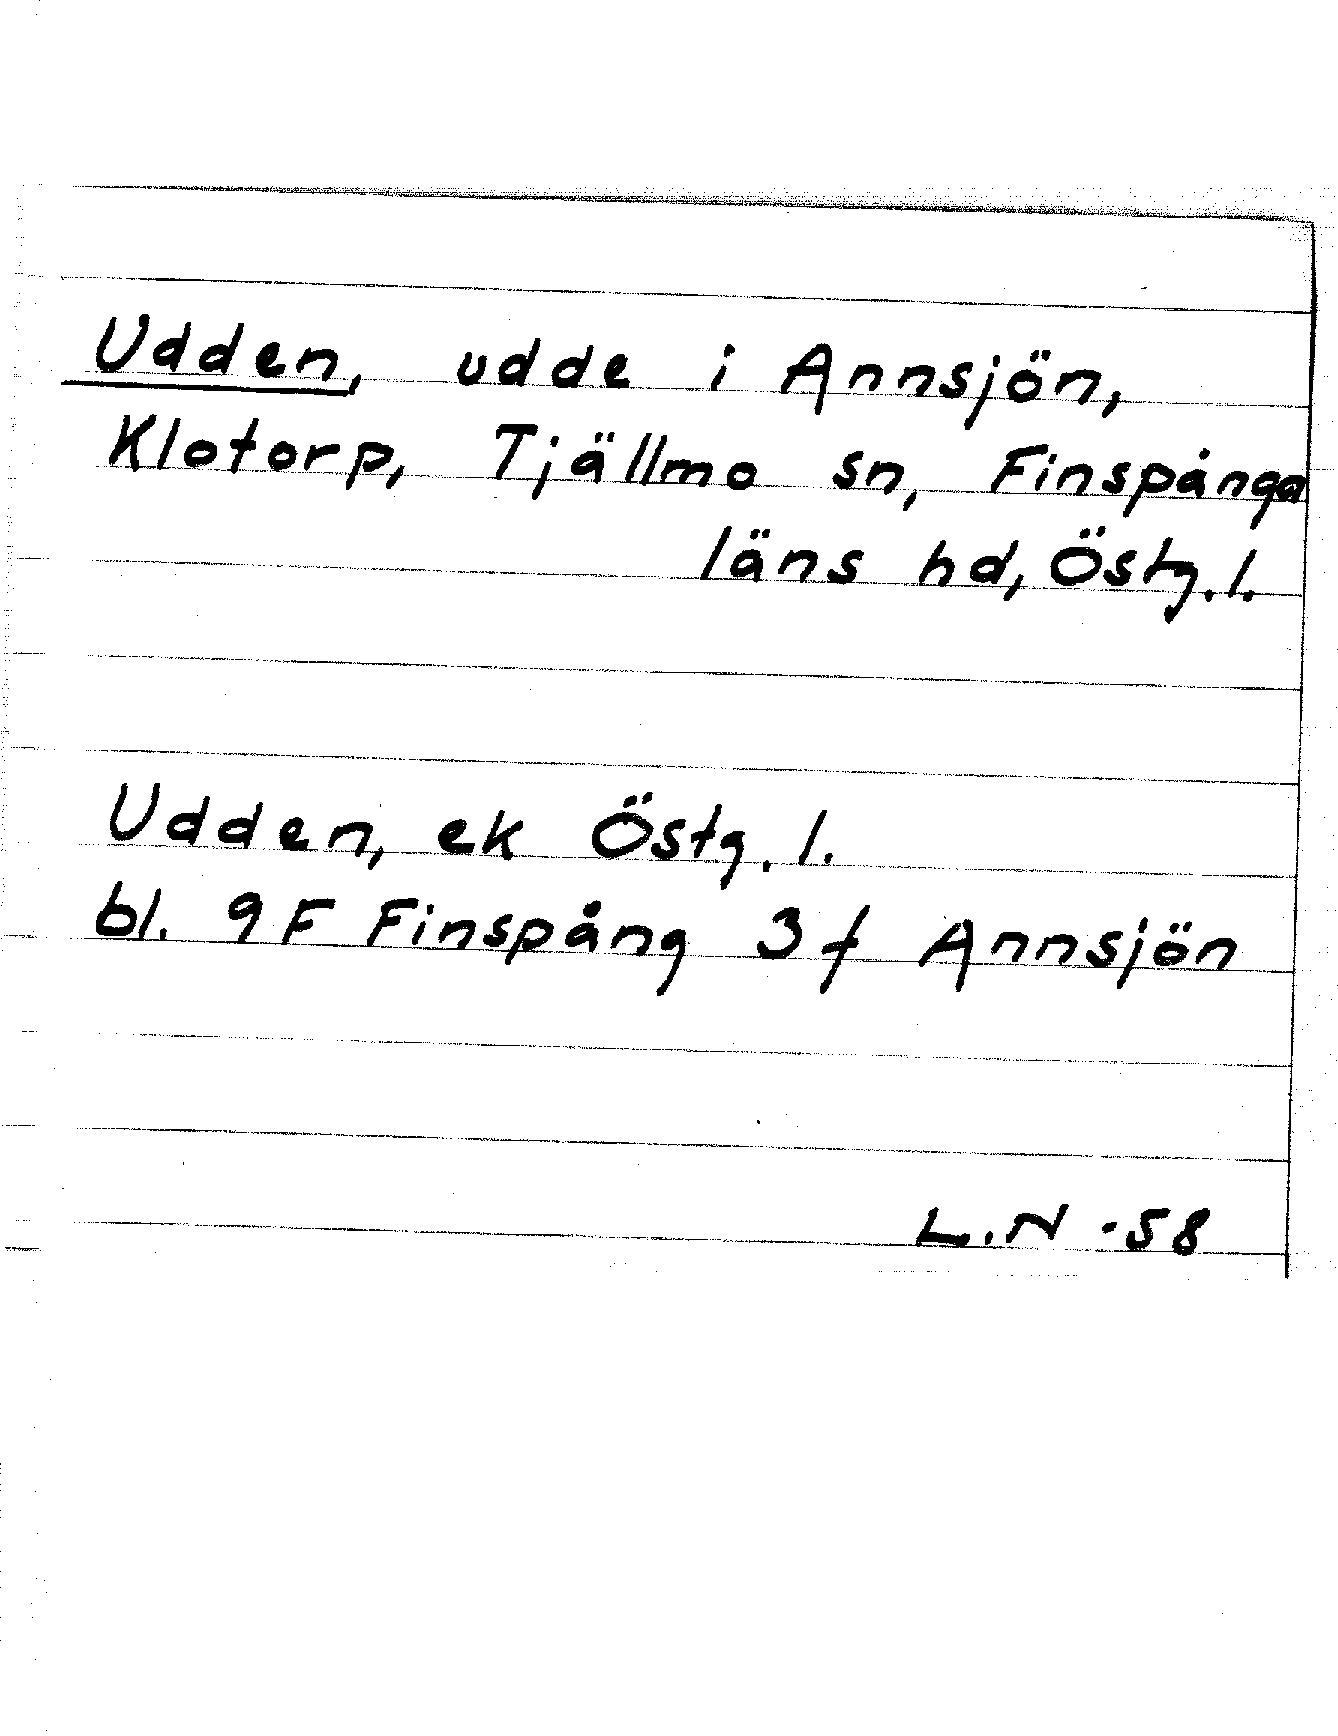 Udden, udde i Annsjön,
Klotorp, Tjällmo sn, Finspånga
läns hd, Östg. l.
Udden, ek Östg. l.
bl. 9 F Finspång 3 f Annsjön
L.N -58